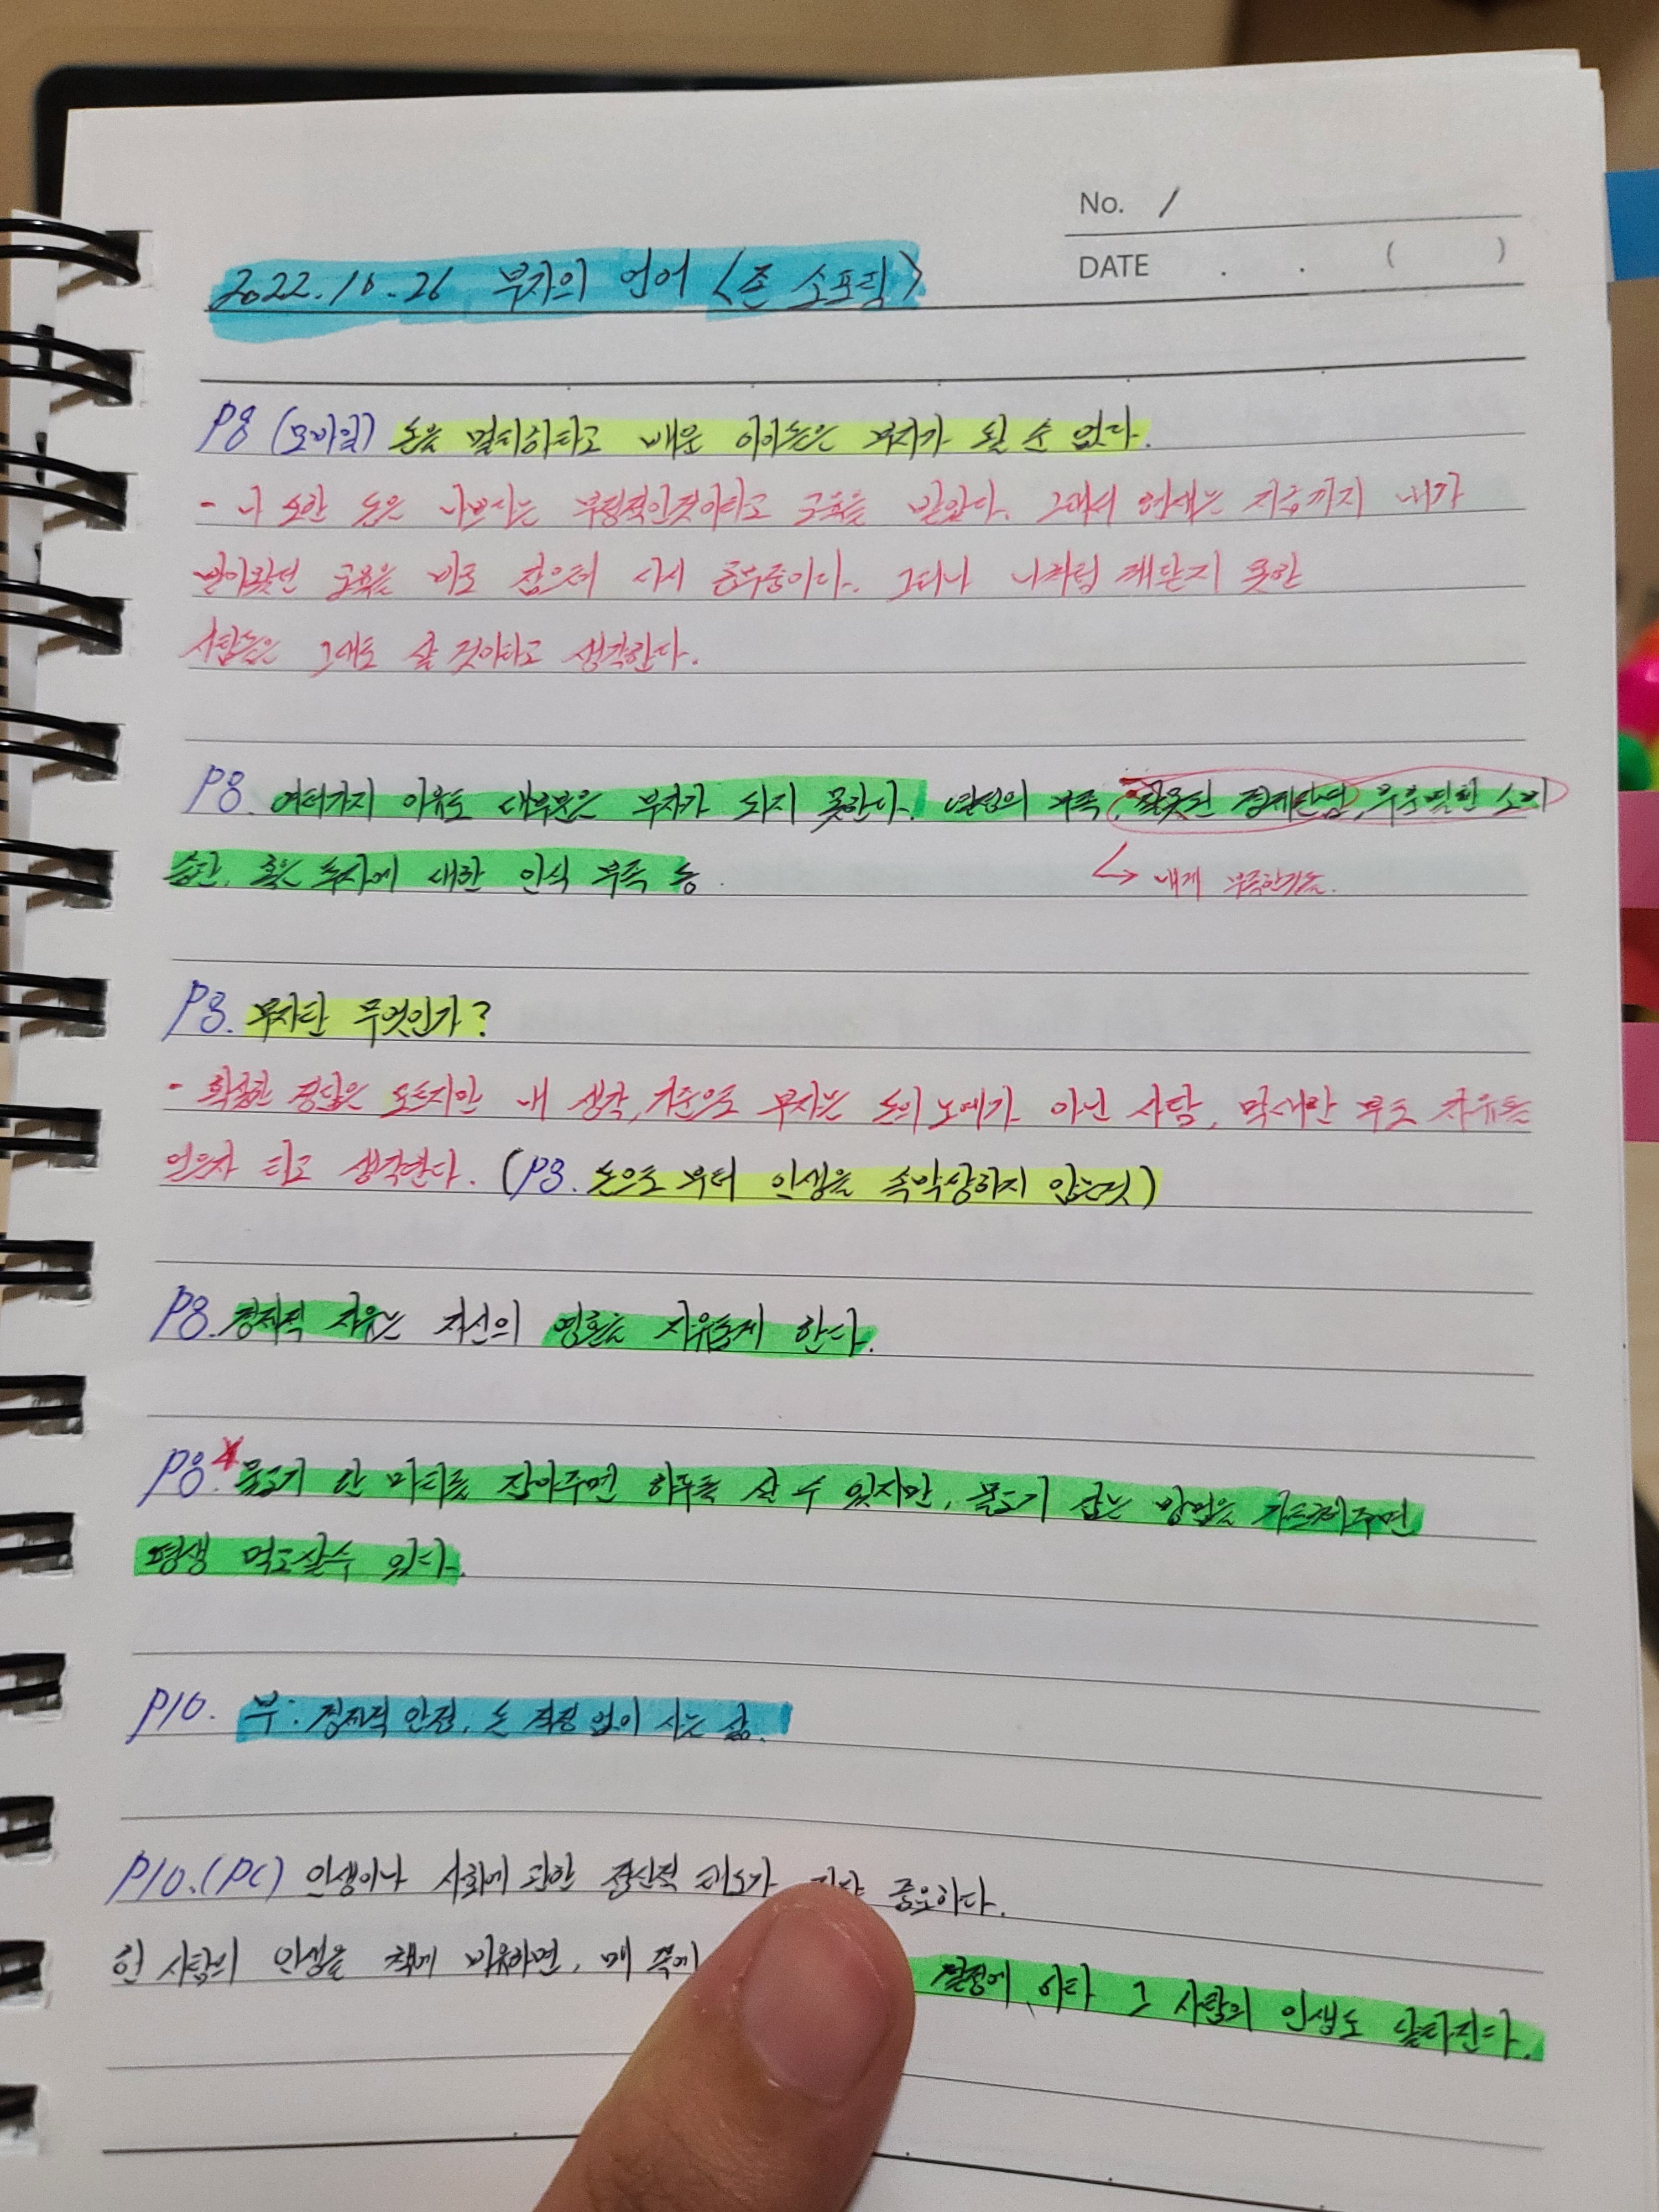 No. 1
DATE . . ( )
2022.10.26 부자의 언어 <존 소포릭>
P8 (모바일) 돈을 멀리하라고 배운 아이들은 부자가 될 수 없다.
- 나 또한 돈은 나쁘다는 부정적인것이라고 교육을 받았다. 그래서 현재는 지금까지 내가
받아왔던 교육을 바로 잡으며 다시 공부중이다. 그러나 나처럼 깨닫지 못한
사람들은 그대로 살 것이라고 생각한다.
P8. 여러가지 이유로 대부분은 부자가 되지 못한다. 열정의 부족, 잘못된 경제관념, 무분별한 소비
습관, 좋은 투자에 대한 인식 부족 등.
↳ 내게 부족한것들.
P8. 부자란 무엇인가?
- 확실한 정답은 모르지만 내 생각, 기준으로 부자는 돈의 노예가 아닌 사람, 막대한 부로 자유를
얻은자 라고 생각한다. (P8. 돈으로 부터 인생을 속박당하지 않는것)
P8. 경제적 자유는 자신의 영혼을 자유롭게 한다.
P8. 물고기 한 마리를 잡아주면 하루를 살 수 있지만, 물고기 잡는 방법을 가르쳐주면
평생 먹고살수 있다.
P10. 부: 경제적 안정, 돈 걱정 없이 사는 삶.
P10.(PC) 인생이나 사회에 관한 정신적 태도가 중요하다.
한 사람의 인생을 책에 비유하면, 매 쪽에 결정에 따라 그 사람의 인생도 달라진다.